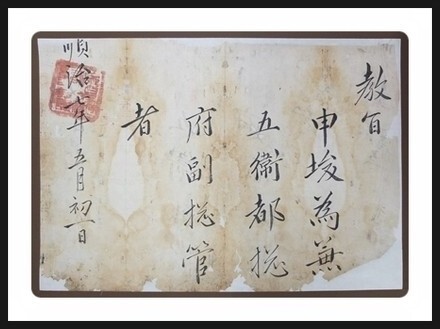 教旨
申埈為兼
五衛都捴
府副捴管
者
順治七年五月初一日